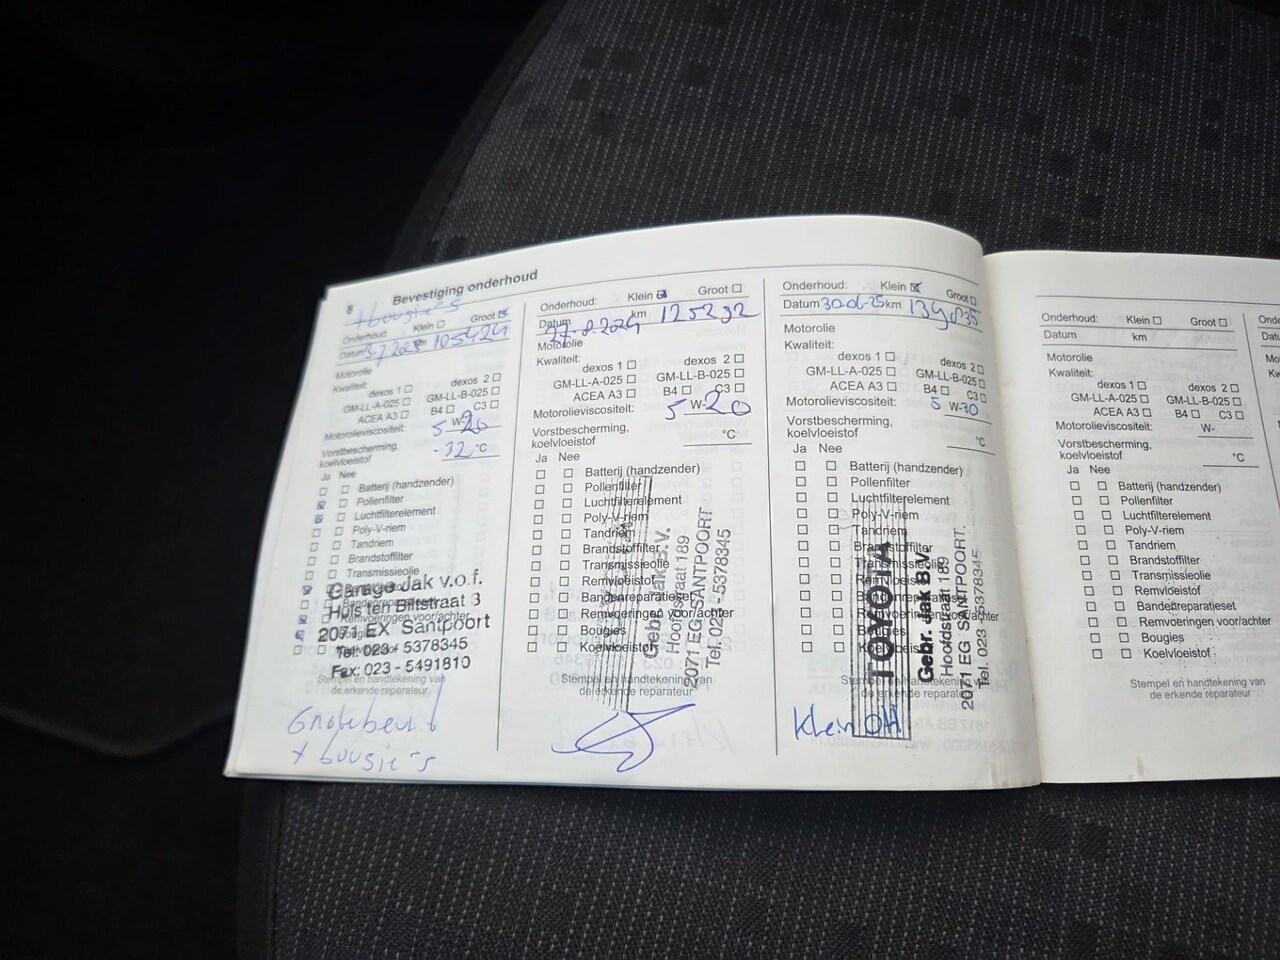 8 Bevestiging onderhoud
+ bougie's
Onderhoud: Klein Groot
Datum km 105424
Motorolie
Kwaliteit:
dexos 1 dexos 2
GM-LL-A-025 GM-LL-B-025
ACEA A3 B4 C3
Motorolieviscositeit: 5 W-20
Vorstbescherming,
koelvloeistof -32 °C
Ja Nee
Batterij (handzender)
Pollenfilter
Luchtfilterelement
Poly-V-riem
Tandriem
Brandstoffilter
Transmissieolie
Remvoeringen voor/achter
Garage Jak v.o.f.
Huis ten Biltstraat 3
2071 EX Santpoort
Tel: 023 - 5378345
Fax: 023 - 5491810
Stempel en handtekening van
de erkende reparateur
Grote beurt
+ bougie's
Onderhoud: Klein Groot
Datum 27-8-2024 km 125232
Motorolie
Kwaliteit:
dexos 1 dexos 2
GM-LL-A-025 GM-LL-B-025
ACEA A3 B4 C3
Motorolieviscositeit: 5 W-20
Vorstbescherming,
koelvloeistof °C
Ja Nee
Batterij (handzender)
Pollenfilter
Luchtfilterelement
Poly-V-riem
Tandriem
Brandstoffilter
Transmissieolie
Remvloeistof
Bandenreparatieset
Remvoeringen voor/achter
Bougies
Koelvloeistof
Gebr. Jak B.V.
Hoofdstraat 189
2071 EG SANTPOORT
Tel. 023 - 5378345
Stempel en handtekening van
de erkende reparateur
Onderhoud: Klein Groot
Datum 30-06-25 km 139035
Motorolie
Kwaliteit:
dexos 1 dexos 2
GM-LL-A-025 GM-LL-B-025
ACEA A3 B4 C3
Motorolieviscositeit: 5 W-30
Vorstbescherming,
koelvloeistof °C
Ja Nee
Batterij (handzender)
Pollenfilter
Luchtfilterelement
Poly-V-riem
Tandriem
Brandstoffilter
Transmissieolie
Remvloeistof
Bandenreparatieset
Remvoeringen voor/achter
Bougies
Koelvloeistof
TOYOTA
Gebr. Jak B.V.
Hoofdstraat 189
2071 EG SANTPOORT.
Tel. 023 - 5378345
Stempel en handtekening van
de erkende reparateur
Klein OH
Onderhoud: Klein Groot
Datum km
Motorolie
Kwaliteit:
dexos 1 dexos 2
GM-LL-A-025 GM-LL-B-025
ACEA A3 B4 C3
Motorolieviscositeit: W-
Vorstbescherming,
koelvloeistof °C
Ja Nee
Batterij (handzender)
Pollenfilter
Luchtfilterelement
Poly-V-riem
Tandriem
Brandstoffilter
Transmissieolie
Remvloeistof
Bandenreparatieset
Remvoeringen voor/achter
Bougies
Koelvloeistof
Stempel en handtekening van
de erkende reparateur